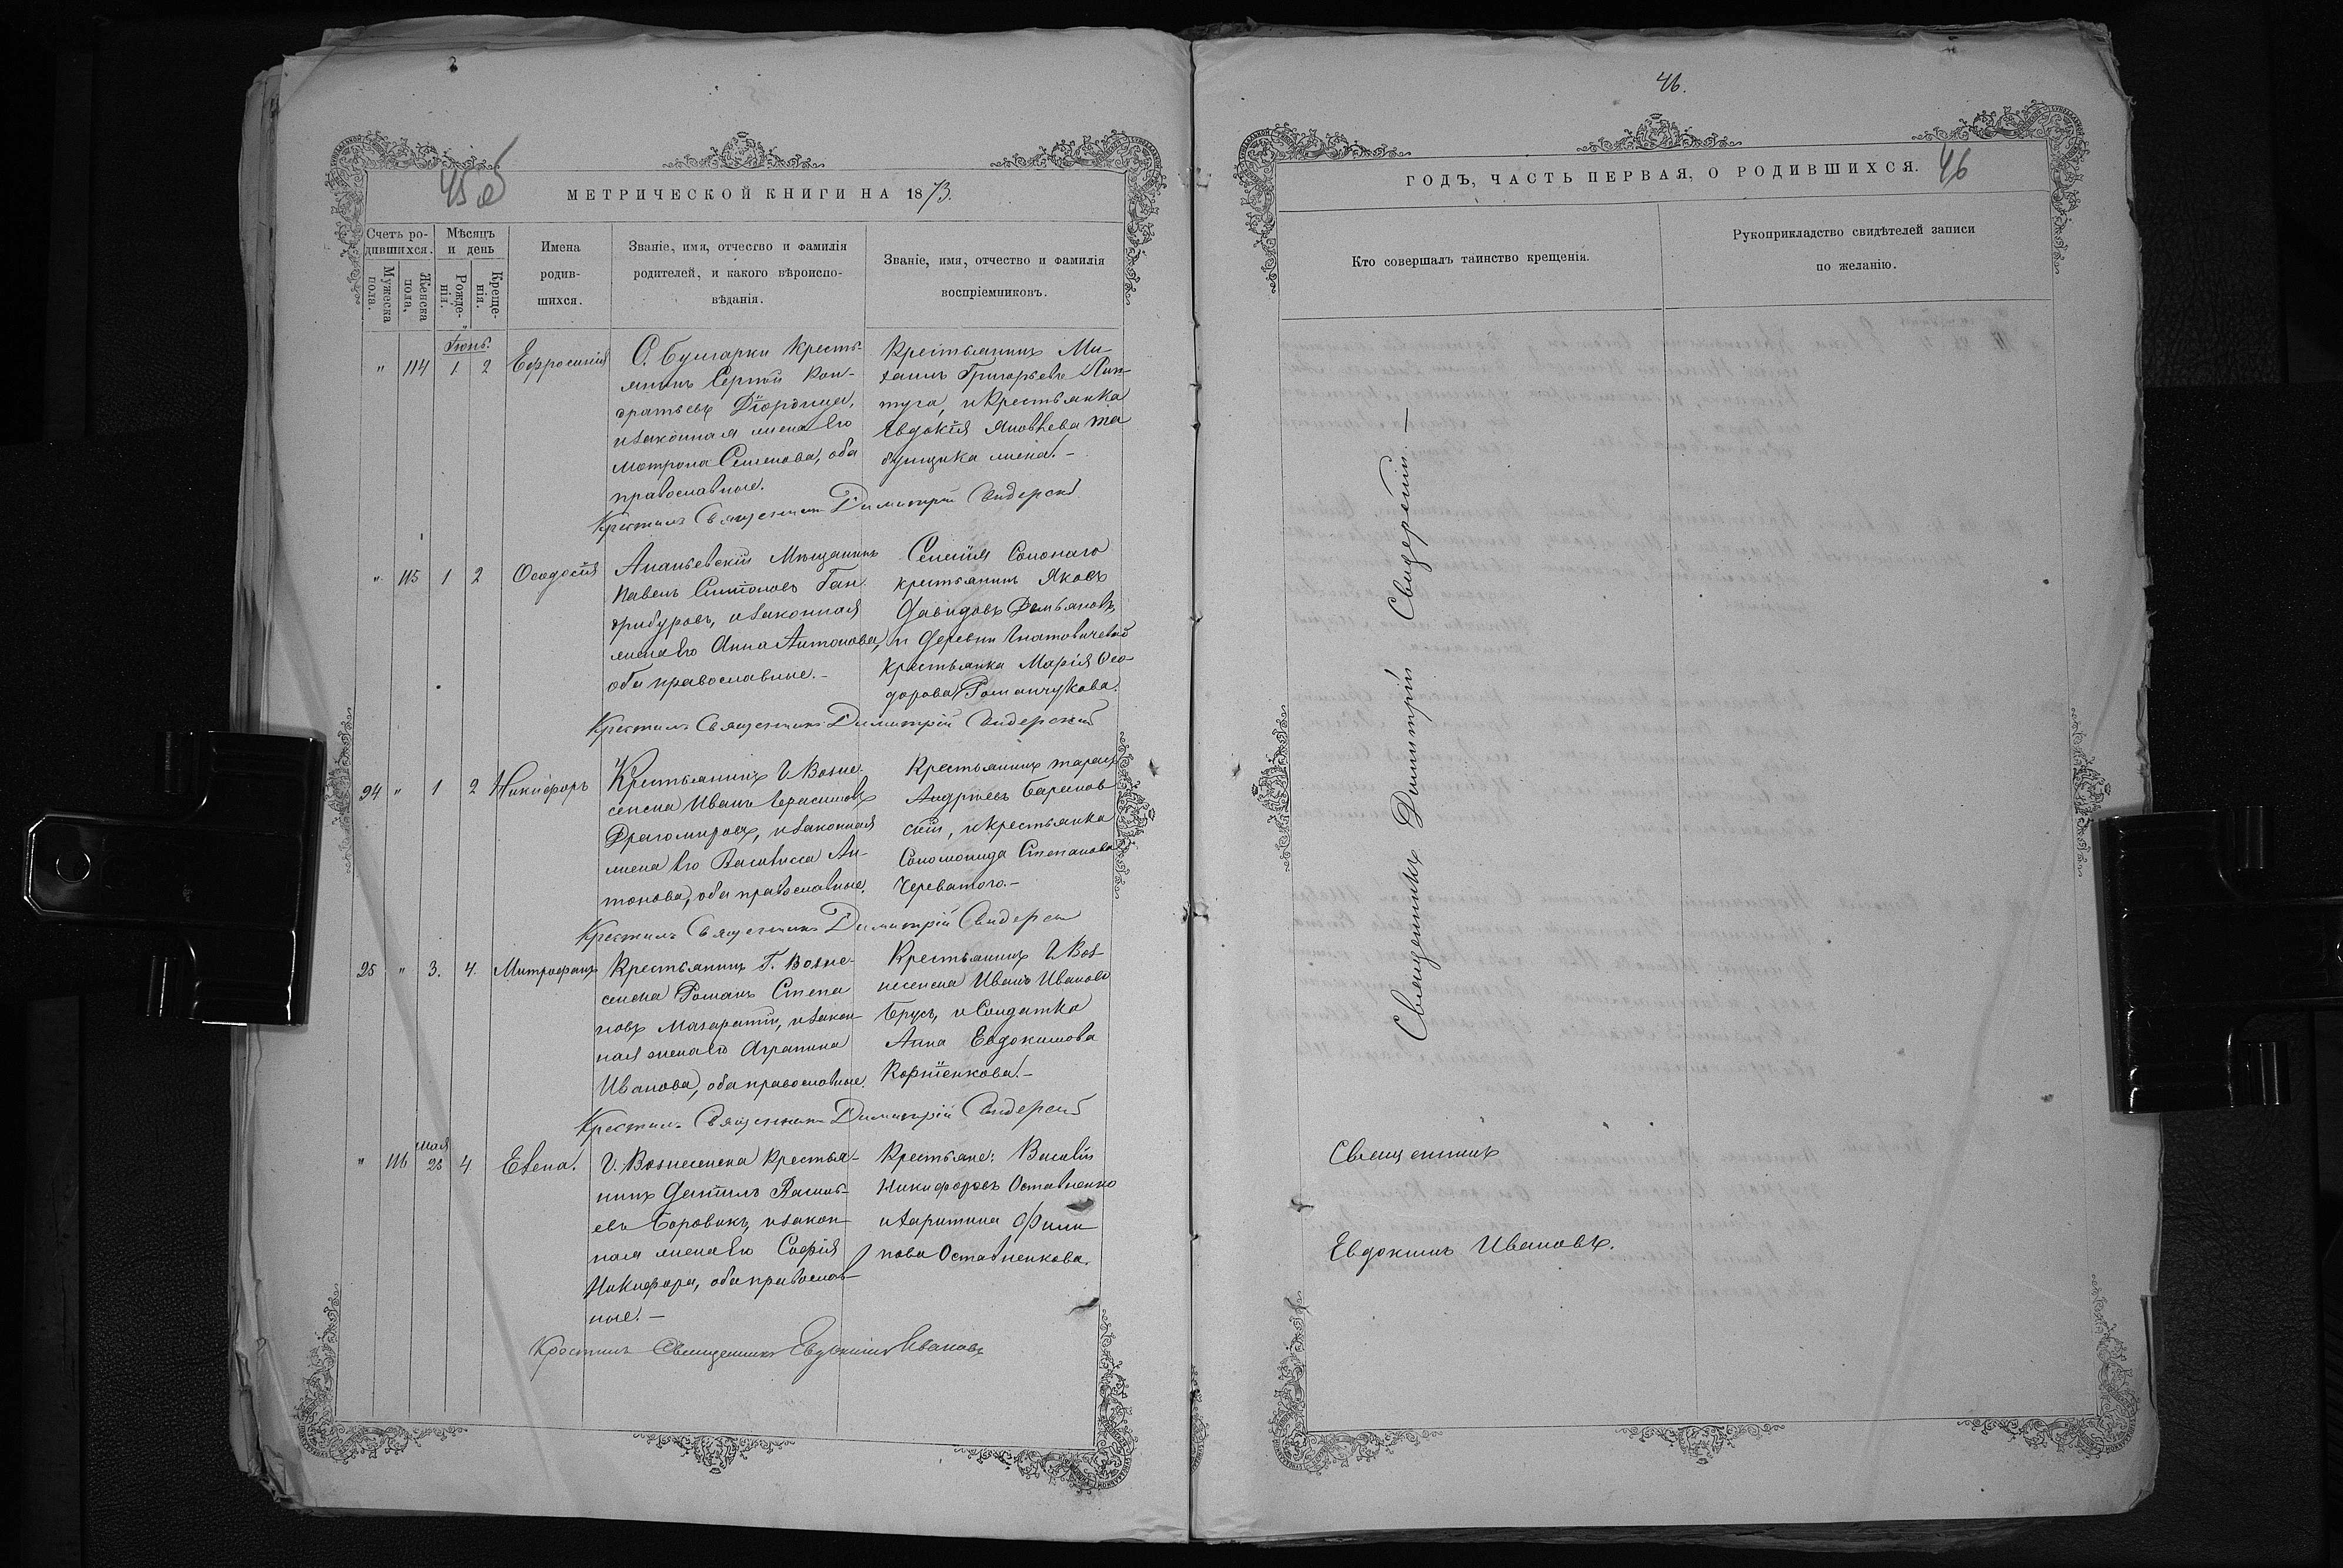 45 об
МЕТРИЧЕСКОЙ КНИГИ НА 1873.
Счетъ ро-
дившихся.
Мужеска
пола.
Женска
пола.
Мѣсяцъ
и день
Рожде-
нія.
Креще-
нія.
Имена
родив-
шихся.
Званіе, имя, отчество и фамилія
родителей, и какого вѣроиспо-
вѣданія.
Званіе, имя, отчество и фамилія
воспріемниковъ.
Іюнь.
" 114 1 2 Ефросинія
С. Булгарки Кресть-
янинъ Сергѣй Кон-
дратьевъ
изаконная жена его
Мотрона Семенова, оба
православные.
Крестьянинъ Ми-
хаилъ Григорьевъ
и Крестьянка
Евдокія Яковлева
жена. -
Крестилъ Священникъ Димитрій
" 115 1 2 Ѳеодосія
Ананьевскій Мѣщанинъ
Павелъ
изаконная
жена его Анна Антонова,
оба православные. -
Селенія Солонаго
крестьянинъ Яковъ
Давидовъ Демьяновъ,
и Деревни
Крестьянка Марія Ѳео-
дорова Романчукова.
Крестилъ Священникъ Димитрій
94 " 1 2 Никифоръ
Крестьянинъ Г. Возне-
сенска Иванъ Герасимовъ
Драгомировъ, изаконная
жена его Василисса Ан-
тонова, оба православные.
Крестьянинъ Тарасъ
Андреевъ Баранов
скій, и Крестьянка
Соломонида Степанова
Череватого. -
Крестилъ Священникъ Димитрій
25 " 3. 4. Митрофанъ
Крестьянинъ Г. Возне-
сенска Романъ Степа
новъ изакон-
ная жена его Агрипина
Иванова, оба православные.
Крестьянинъ Г. Воз-
несенска Иванъ Ивановъ
Брусъ, и Солдатка
Анна Евдокимова
Корнѣенкова. -
Крестилъ Священникъ Димитрій
мая
" 116 28 4 Елена.
Г. Вознесенска Крестья-
нинъ Даніилъ Василь-
евъ Боровикъ, изакон-
ная жена его Софія
Никифора, оба православ-
ные. -
Крестьяне: Василій
Никифоровъ Оставненко
иХаритина Фили
пова Оставненкова.
Крестилъ Священникъ Евдокимъ Ивановъ
46.
ГОДЪ, ЧАСТЬ ПЕРВАЯ, О РОДИВШИХСЯ. 46
Кто совершалъ таинство крещенія.
Рукоприкладство свидѣтелей записи
по желанію.
Священникъ Димитрій Свидерскій -
Священникъ
Евдокимъ Ивановъ.